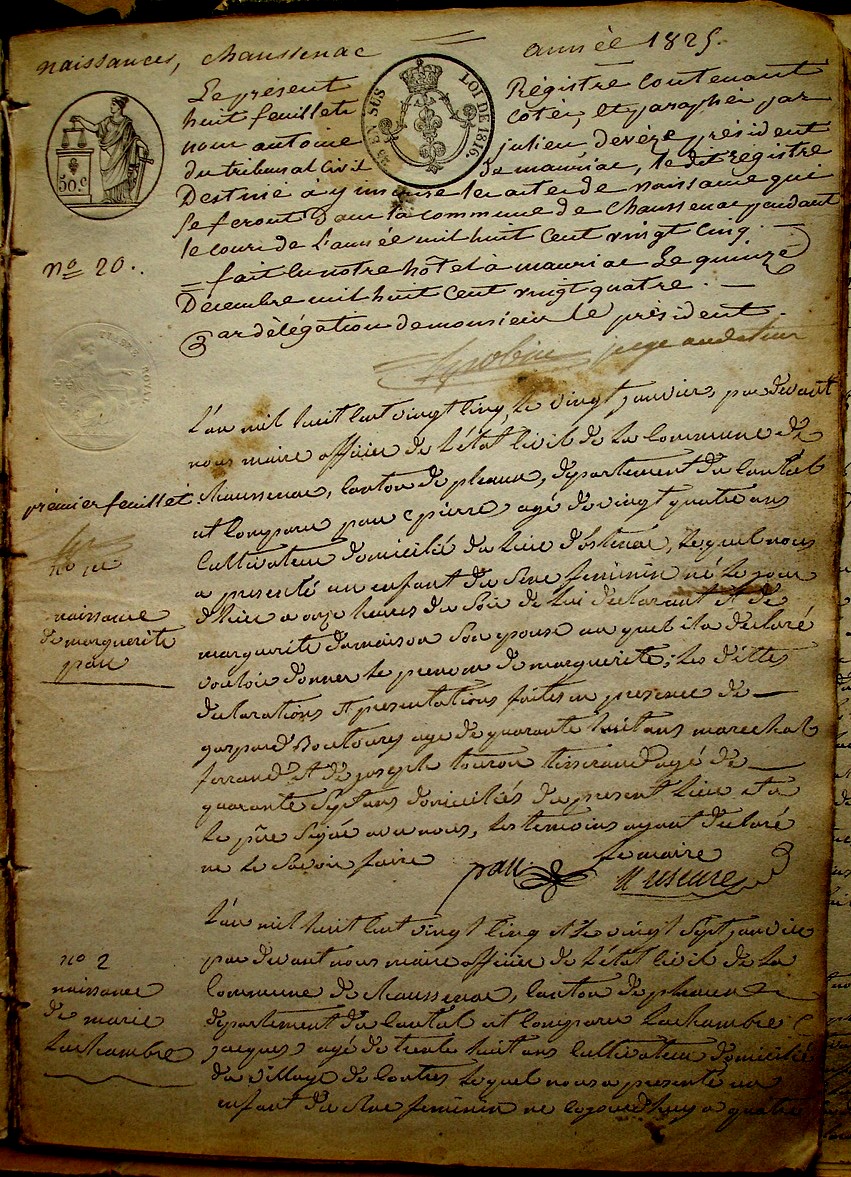 naissances, chaussenac année 1825.
Le présent Régistre contenant
huit feuillets cotés, et paraphés par
nous antoine julien devèze président
du tribunal Civil de mauriac, le dit régistre
Destiné à y inscrire les actes de naissance qui
se feront Dans la commune de Chaussenac pendant
le cours de L'année mil huit Cent vingt Cinq.
fait en notre hôtel à mauriac Le quinze
Décembre mil huit Cent vingt quatre.
Par délégation de monsieur le président.
juge auditeur
ET SES
LOI DE 1816.
50 c
n° 20.
TIMBRE ROYAL
L'an mil huit cent vingt cinq, le vingt janvier, par devant
nous maire officier de L'état Civil de La Commune de
Chaussenac, Canton de pleaux, département du Cantal
est Comparu pau pierre agé de vingt quatre ans
Cultivateur domicilié du lieu d'ostenac, Lequel nous
a presenté un enfant du sexe feminin né Le jour
d'hier a onze heures du soir de Lui déclarant et de
marguerite damaison son epouse au quel il a declaré
vouloir donner Le prenom de marguerite, Les dittes
declarations et presentations faites en presence de
gaspard Boutoures agé de quarante huit ans marechal
ferrand et de joseph touron tisserand agé de
quarante sept ans domiciliés du present Lieu et a
Le père signé avec nous, Les temoins ayant declaré
ne Le savoir faire
pau Le maire
premier feuillet
n° 1er
naissance
de marguerite
pau
L'an mil huit cent vingt cinq et Le vingt sept janvier
par devant nous maire officier de L'état Civil de La
Commune de Chaussenac, Canton de pleaux
departement du Cantal est Comparu Lachambre
jacques, agé de trente huit ans Cultivateur domicilié
du village de Contres Lequel nous a presenté un
enfant du sexe feminin né cejourdhuy a quatre
n° 2
naissance
de marie
Lachambre